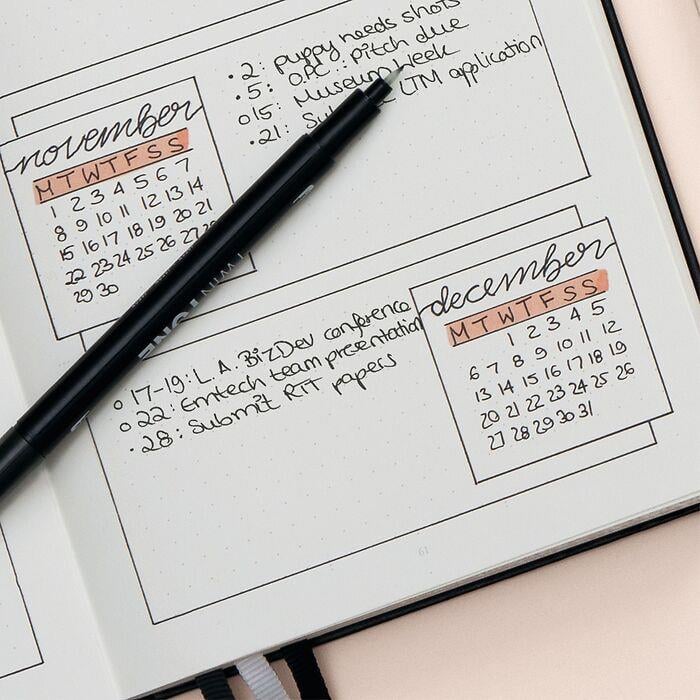 • 2: puppy needs shots
• 5: O.P.C.: pitch due
o 15: Museum Week
• 21: LTM application
november
M T W T F S S
1 2 3 4 5 6 7
8 9 10 11 12 13 14
15 16 17 18 19 20 21
22 23 24 25 26 27
29 30
TWIN TONE
o 17-19: L.A. BizDev conference
o 22: Emtech team presentation
• 28: Submit RIT papers
december
M T W T F S S
1 2 3 4 5
6 7 8 9 10 11 12
13 14 15 16 17 18 19
20 21 22 23 24 25 26
27 28 29 30 31
61